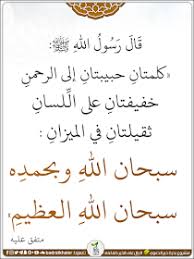 قَالَ رَسُولُ اللهِ ﷺ:
«كلمتانِ حبيبتانِ إلى الرحمنِ
خفيفتانِ على اللِّسانِ
ثقيلتانِ في الميزانِ :
سبحان اللهِ وبحمدِه
سبحان اللهِ العظيمِ»
متفق عليه